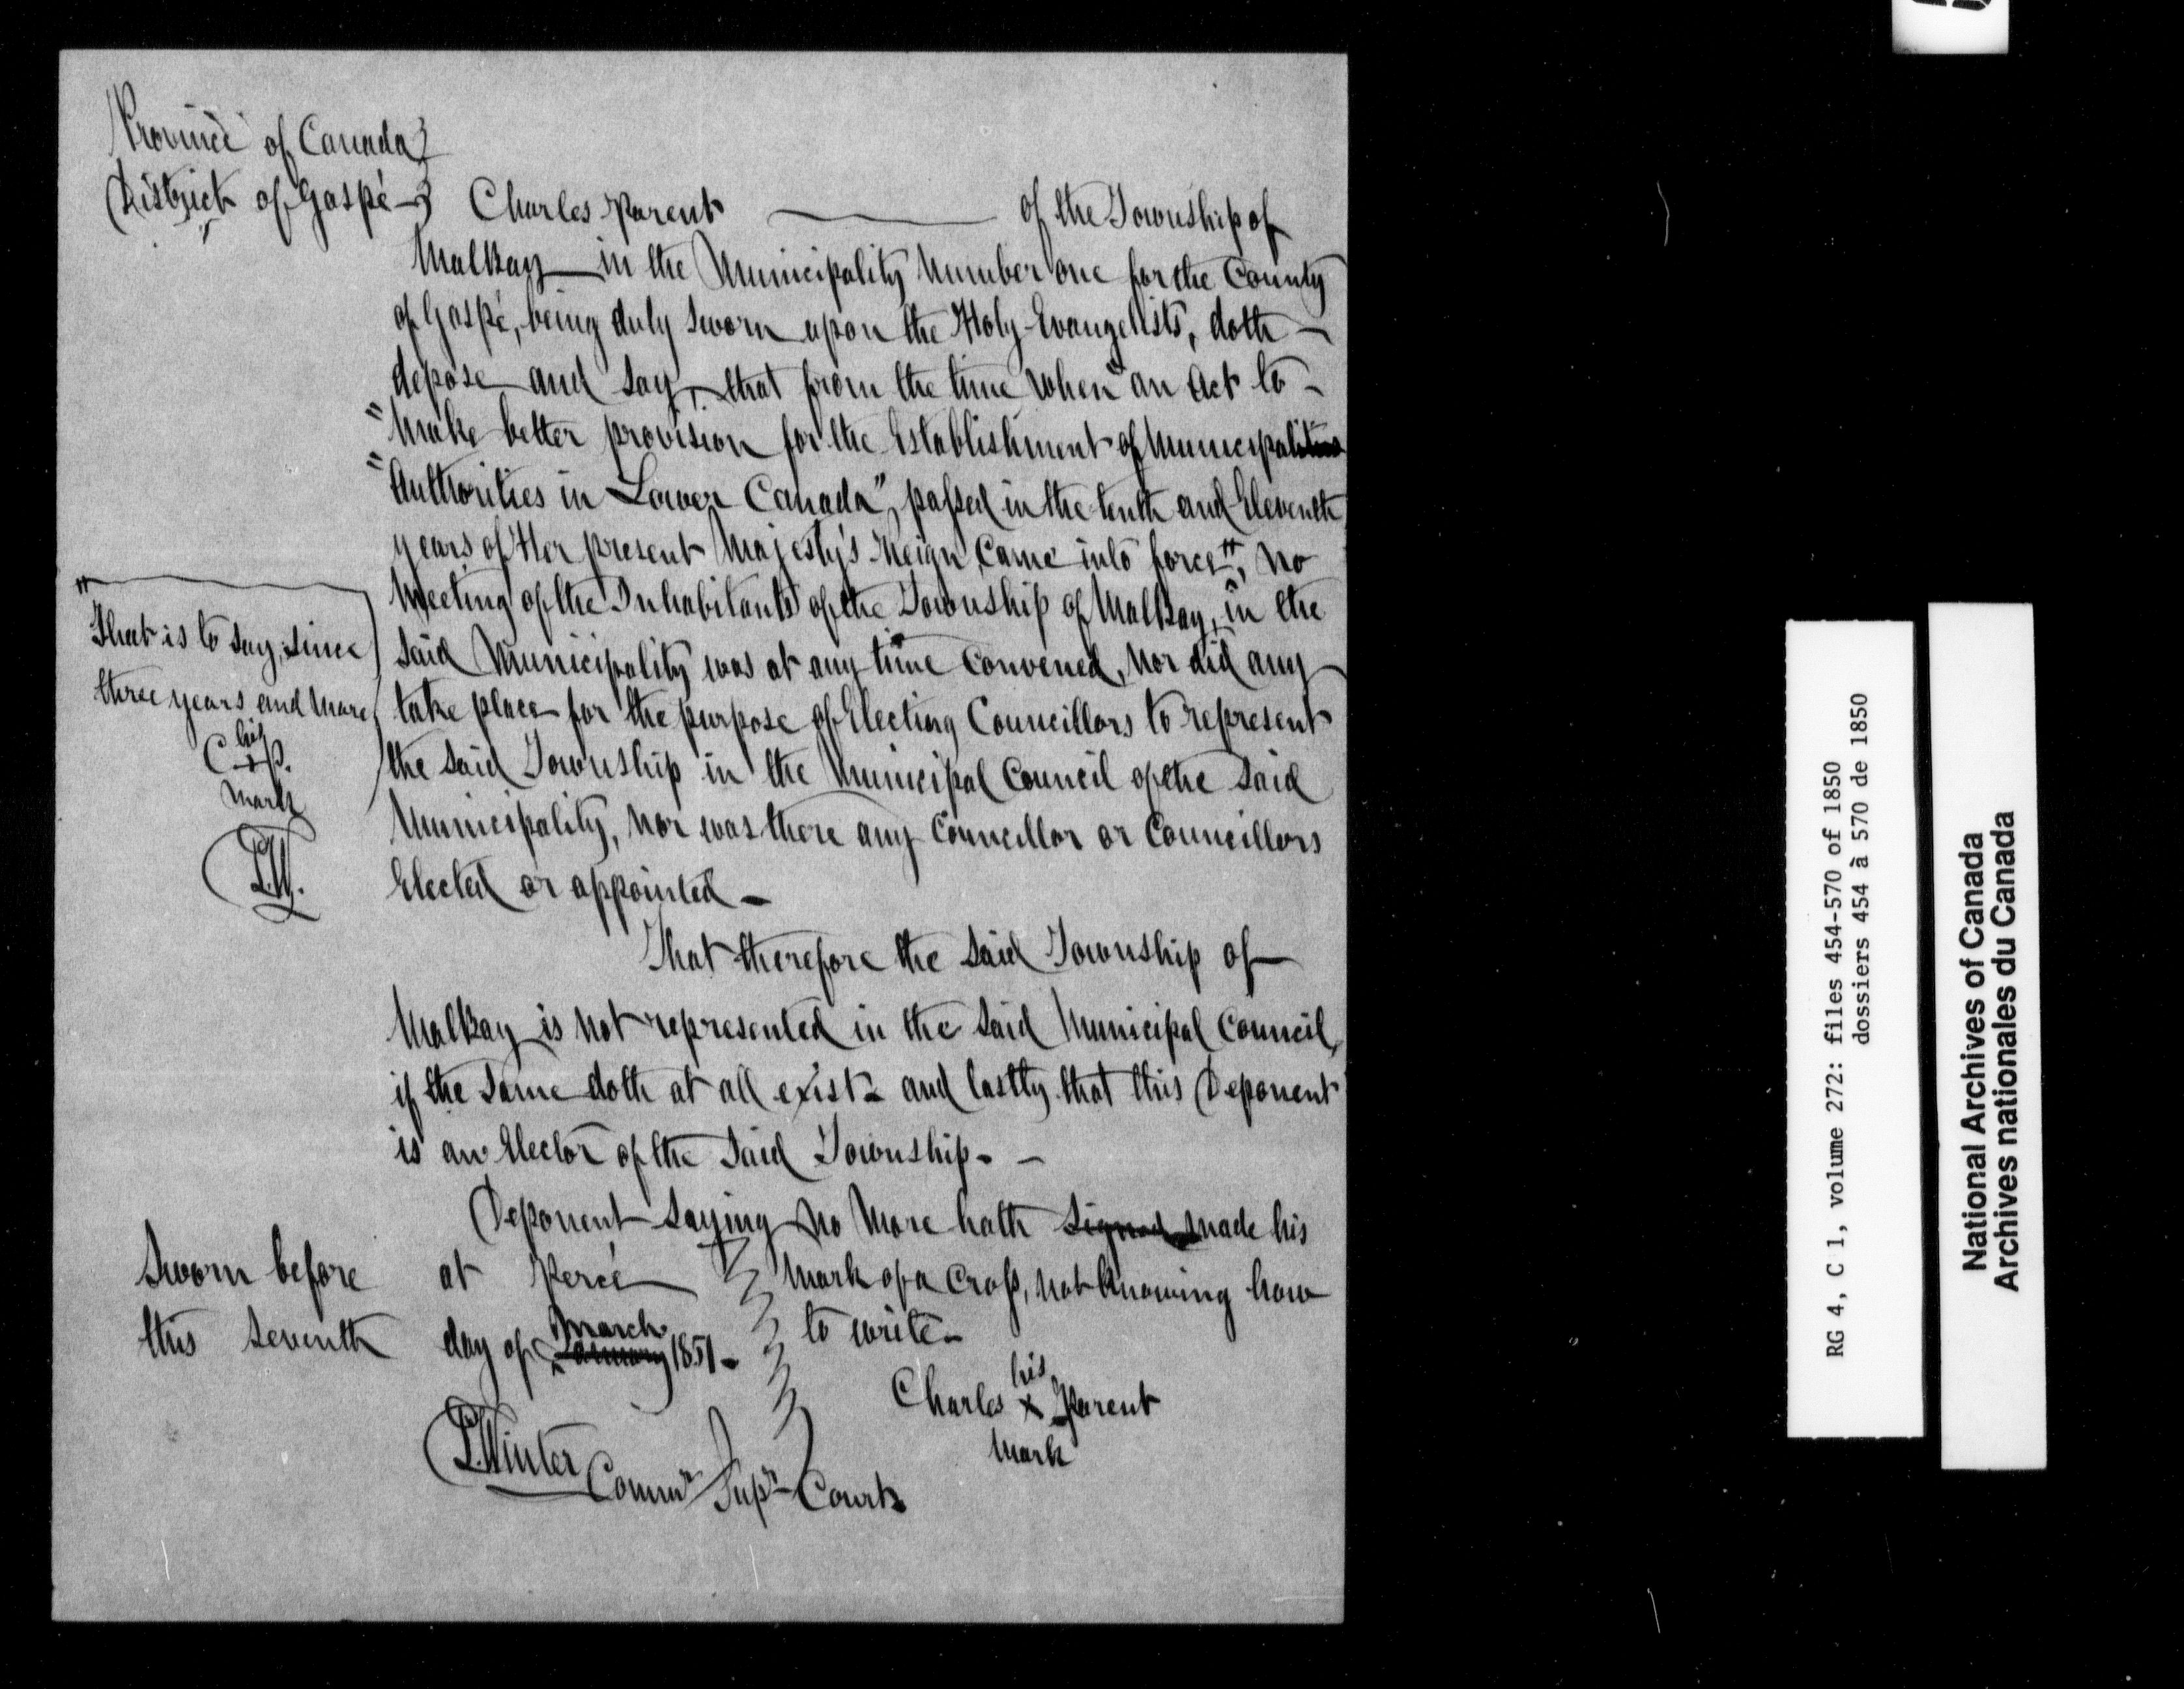 Province of Canada
District of Gaspé
Charles Parent — of the Township of
Malbay in the Municipality Number one for the County
of Gaspé, being duly Sworn upon the Holy Evangelists, doth —
depose and Say, that from the time when "an Act to -
"Make better provision for the Establishment of Municipalities
"Authorities in Lower Canada", passed in the tenth and Eleventh
years of Her present Majesty's Reign Came into force", No
Meeting of the Inhabitants of the Township of Malbay, in the
Said Municipality was at any time Convened, Nor did any
take place for the purpose of Electing Councillors to represent
the Said Township in the Municipal Council of the Said
Municipality, Nor was there any Councillor or Councillors
Elected or appointed —
"
That is to Say, Since
three years and More
his
C + P.
Mark
P.W.
That therefore the Said Township of
Malbay is Not represented in the Said Municipal Council,
if the Same doth at all exist - and lastly that this Deponent
is an Elector of the Said Township - -
Deponent Saying No More hath Signed Made his
Mark of a Cross, Not Knowing how
to write -
Sworn before at Percé
this Seventh day of January March 1851 -
his
Charles X Parent
Mark
P. Winter
Commr Supr Court
RG 4, C 1, volume 272: files 454-570 of 1850
dossiers 454 à 570 de 1850
National Archives of Canada
Archives nationales du Canada